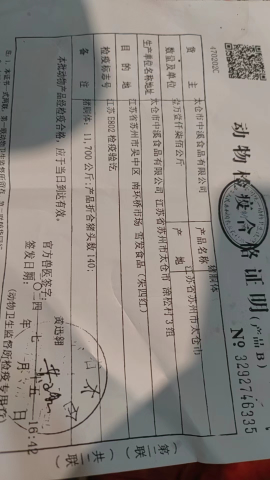 470202C
动物检疫合格证明(产品B)
№ 3292746335
货主 太仓市中溪食品有限公司 产品名称 猪胴体
数量及单位 壹万壹仟柒佰公斤 产地 江苏省苏州市太仓市
生产单位名称地址 太仓市中溪食品有限公司 江苏省苏州市太仓市 涂松村3组
目的地 江苏省苏州市吴中区 南环桥市场 雪发食品
检疫标志号 江苏 E802 检疫验讫
备注 猪胴体:11,700公斤;产品折合猪头数140;
本批动物产品经检疫合格,应于当日到达有效。
官方兽医签字: 黄迅翱
签发日期: 年七月 十五日 16:42
(动物卫生监督所检疫专用章)